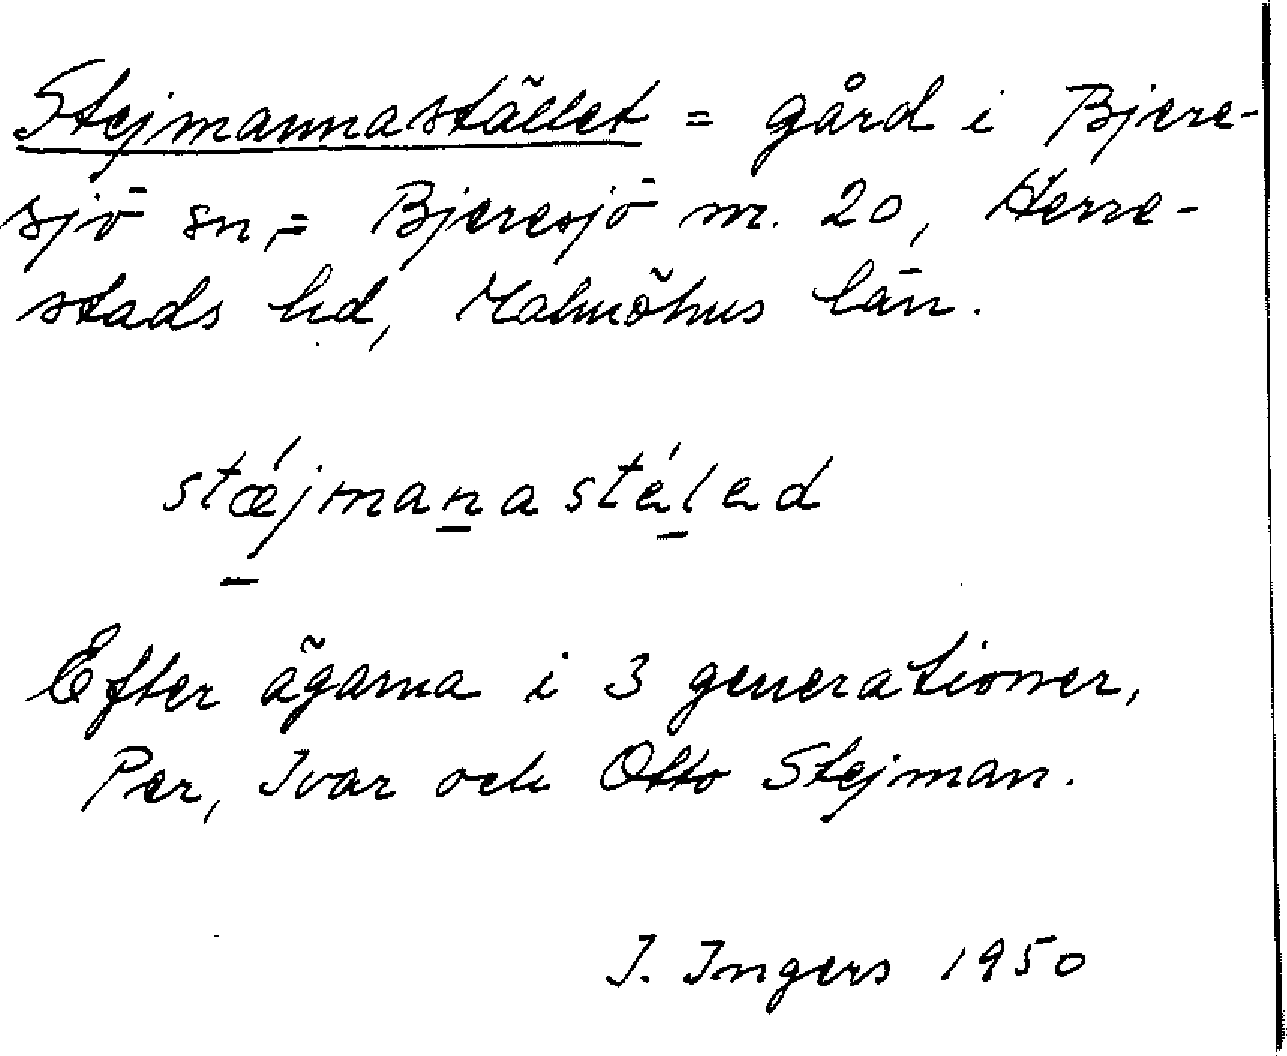 Stejmannastället = gård i Bjere-
sjö sn, = Bjeresjö nr. 20, Herre-
stads hd, Malmöhus län.
stǽjmanastélad
Efter ägarna i 3 generationer,
Per, Ivar och Otto Stejman.
I. Ingers 1950